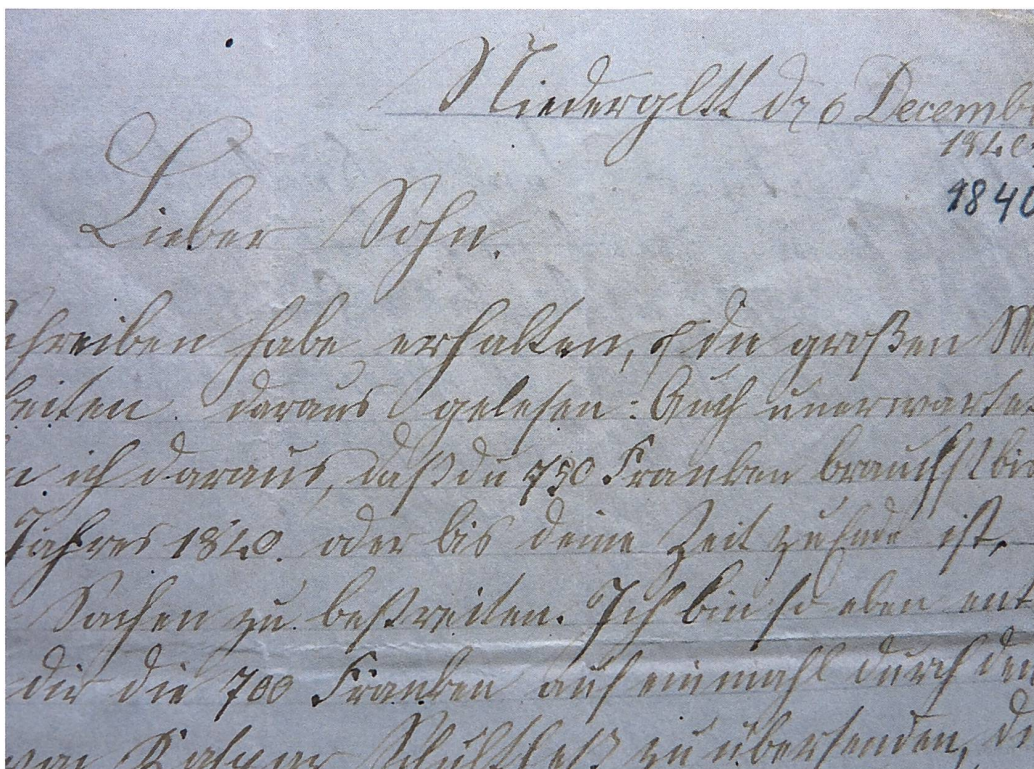 Niederglatt d 6 Decemb
1840
1840
Lieber Sohn.
chreiben habe erhalten, die großen
keiten daraus gelesen: Auch unerwarte
ich daraus, daß du 750 Franken brauchst bi
Jahres 1840. oder bis deine Zeit zu Ende ist,
Sachen zu bestreiten. Ich bin so eben ent
dir die 700 Franken auf einmahl durch den
Kaspar Schultheß zu übersenden, di